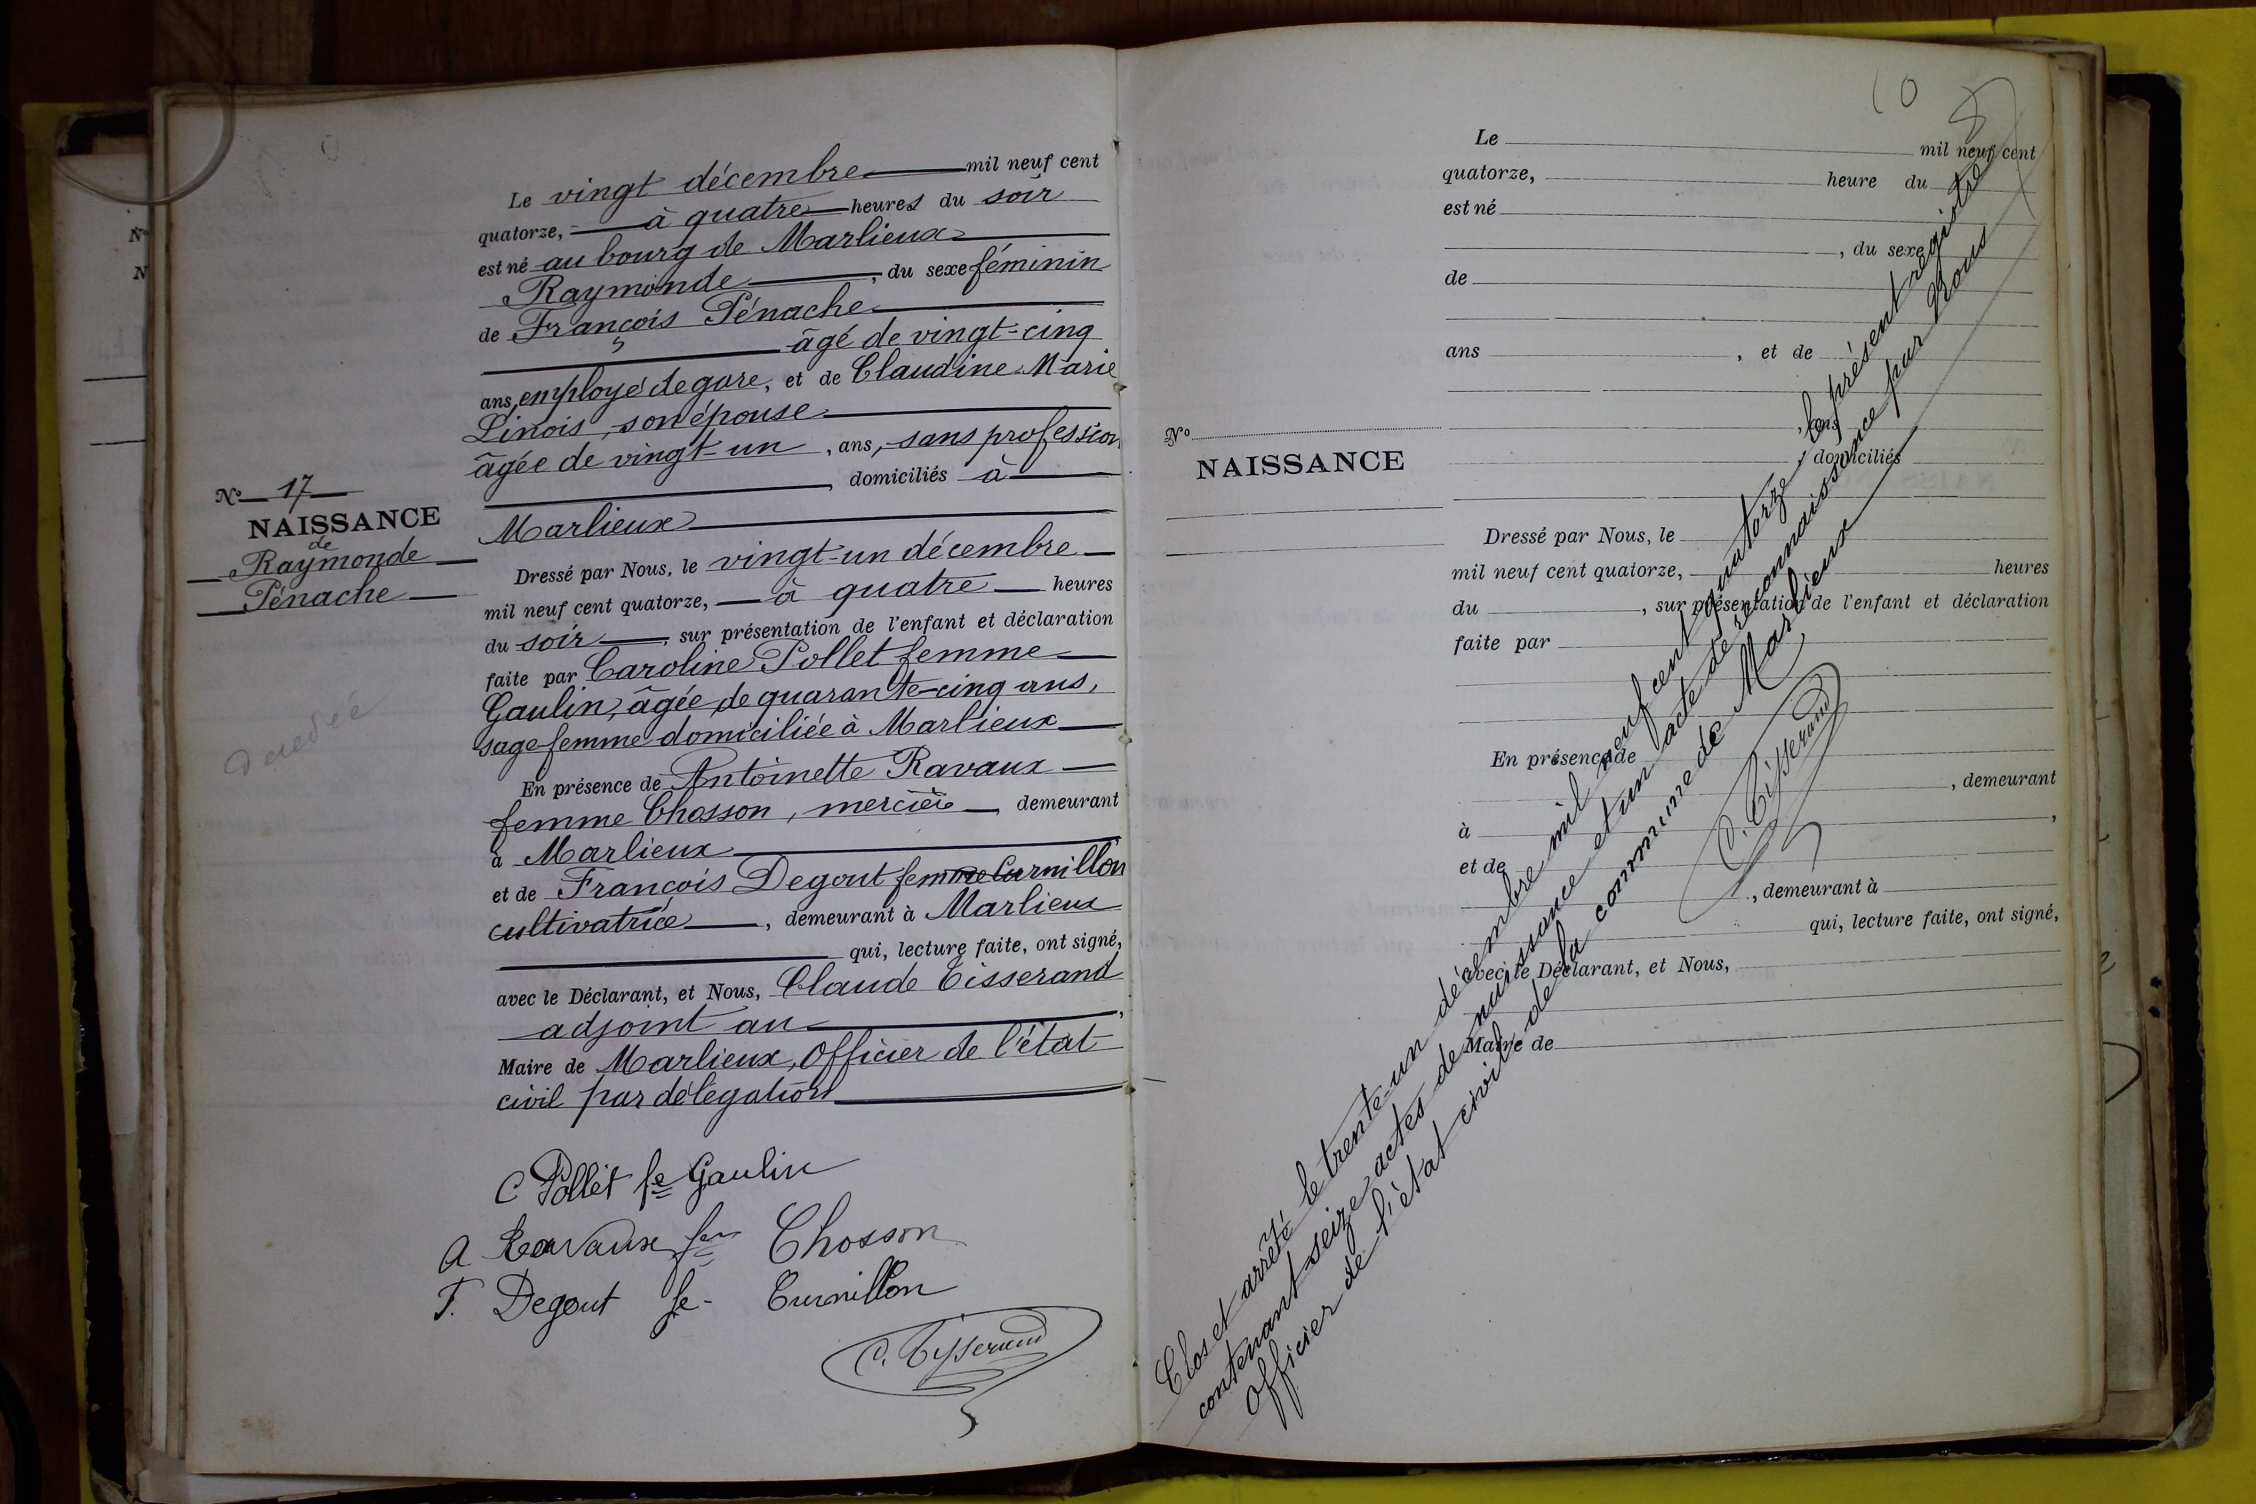 Le vingt décembre mil neuf cent
quatorze, à quatre heures du soir
est né au bourg de Marlieux
Raymonde, du sexe féminin
de François Pénache
âgé de vingt-cinq
ans, employé de gare, et de Claudine Marie
Linois, son épouse
âgée de vingt-un, ans, sans profession
, domiciliés à
Marlieux
N° 17
NAISSANCE
de
Raymonde
Pénache
Dressé par Nous, le vingt-un décembre
mil neuf cent quatorze, à quatre heures
du soir, sur présentation de l'enfant et déclaration
faite par Caroline Pollet femme
Gaulin, âgée de quarante-cinq ans,
sage-femme domiciliée à Marlieux
En présence de Antoinette Ravaux
femme Chosson, mercière, demeurant
à Marlieux
et de François Degout femme Curnillon
cultivatrice, demeurant à Marlieux
qui, lecture faite, ont signé,
avec le Déclarant, et Nous, Claude Tisserand
adjoint au,
Maire de Marlieux, Officier de l'état
civil par délégation
C Pollet fe Gaulin
A Ravaux fem Chosson
F. Degout fe Curnillon
C. Tisserand
10
Le mil neuf cent
quatorze, heure du
est né
, du sexe
de
ans, et de
, ans
, domiciliés
N°
NAISSANCE
Dressé par Nous, le
mil neuf cent quatorze, heures
du, sur présentation de l'enfant et déclaration
faite par
En présence de
, demeurant
à,
et de
, demeurant à
qui, lecture faite, ont signé,
avec le Déclarant, et Nous,
Maire de
Clos et arrêté le trente-un décembre mil neuf cent quatorze le présent registre
contenant seize actes de naissance et un acte de reconnaissance par Nous
Officier de l'état civil de la commune de Marlieux
C. Tisserand